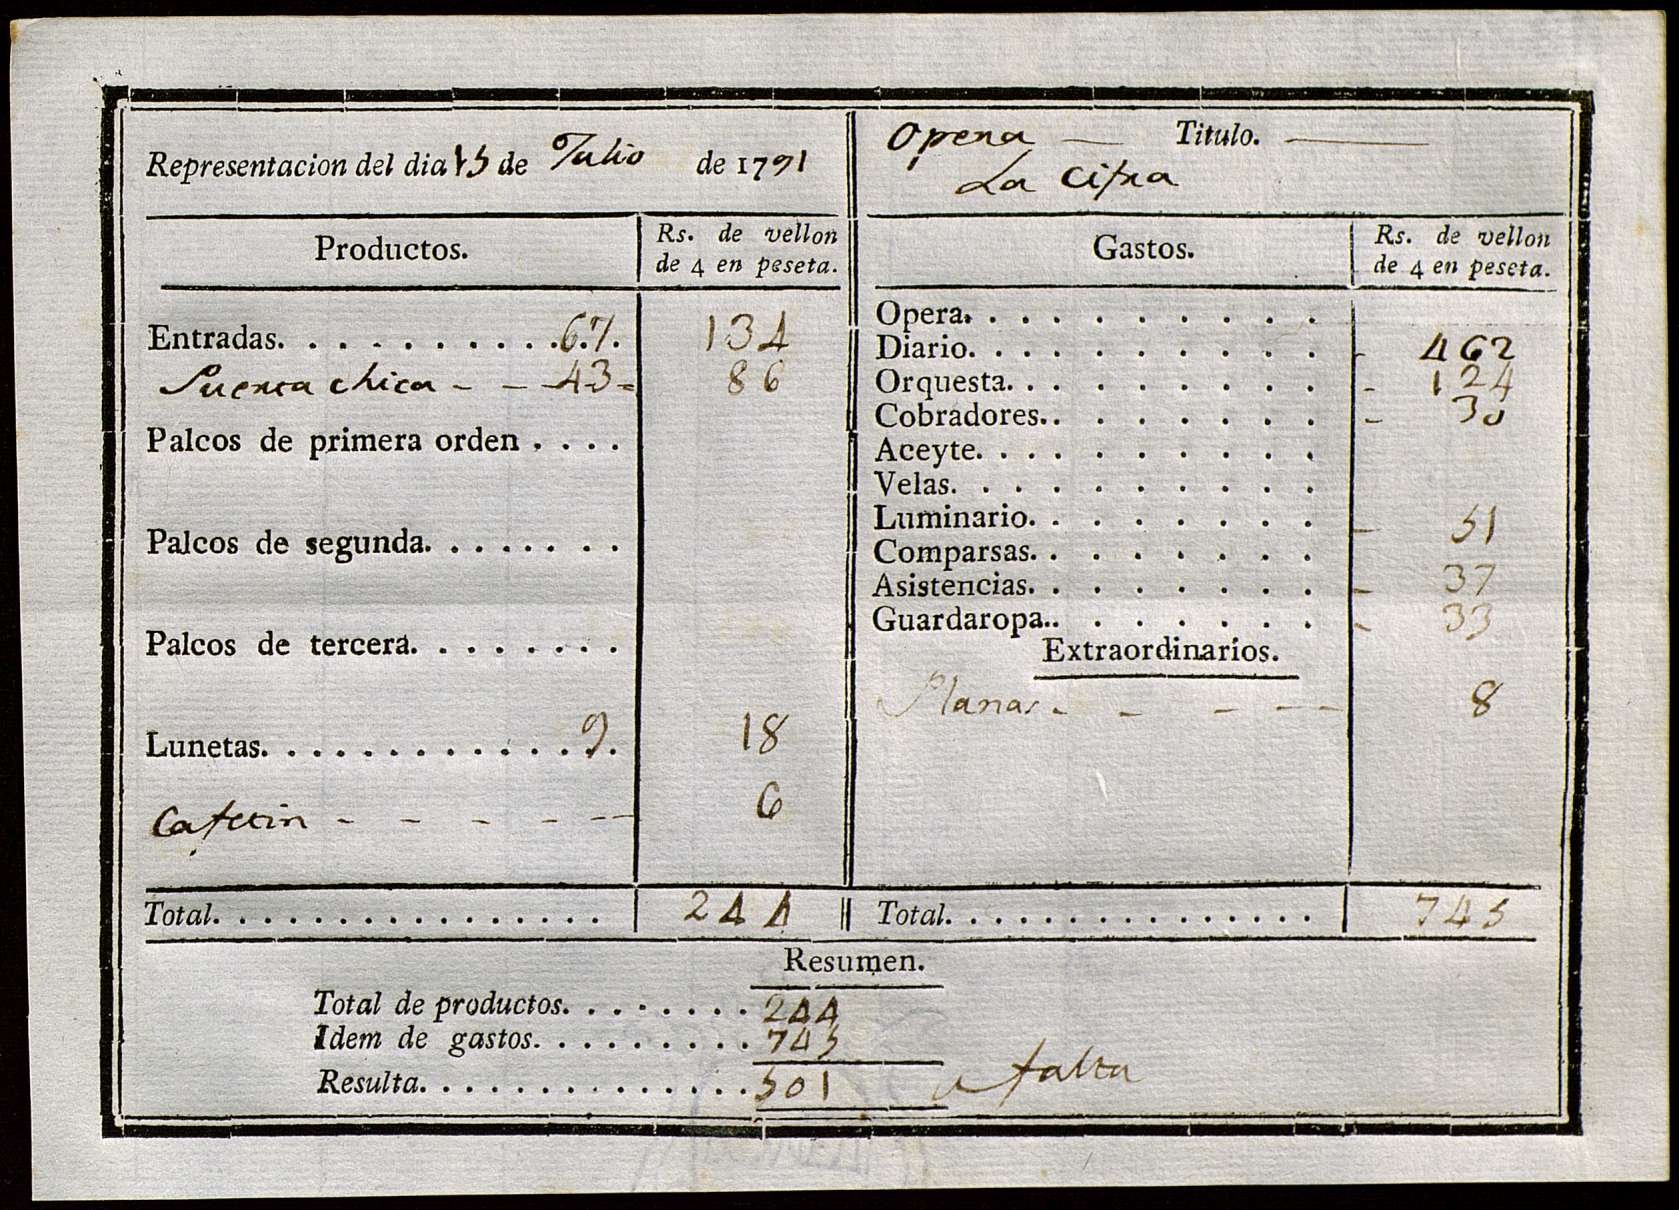 Representacion del dia 15 de Julio de 1791
Opera — Titulo. —
La Cifra
Productos. Rs. de vellon de 4 en peseta.
Entradas. . . . . . . . . . . 67. 134
Puerta chica - - 43 - 86
Palcos de primera orden . . . .
Palcos de segunda. . . . . . . .
Palcos de tercera. . . . . . . .
Lunetas. . . . . . . . . . . . . 9. 18
Cafetin - - - - - - 6
Total. . . . . . . . . . . . . . . . 244
Gastos. Rs. de vellon de 4 en peseta.
Opera. . . . . . . . . . .
Diario. . . . . . . . . . . - 462
Orquesta. . . . . . . . . . - 124
Cobradores.. . . . . . . . - 30
Aceyte. . . . . . . . . . .
Velas. . . . . . . . . . .
Luminario. . . . . . . . . - 51
Comparsas. . . . . . . . .
Asistencias. . . . . . . . . - 37
Guardaropa.. . . . . . . . - 33
Extraordinarios.
Planas - - - - - 8
Total. . . . . . . . . . . . . . . 745
Resumen.
Total de productos. . . . . . . . 244
Idem de gastos. . . . . . . . . . 745
Resulta. . . . . . . . . . . . . . . 501 falta